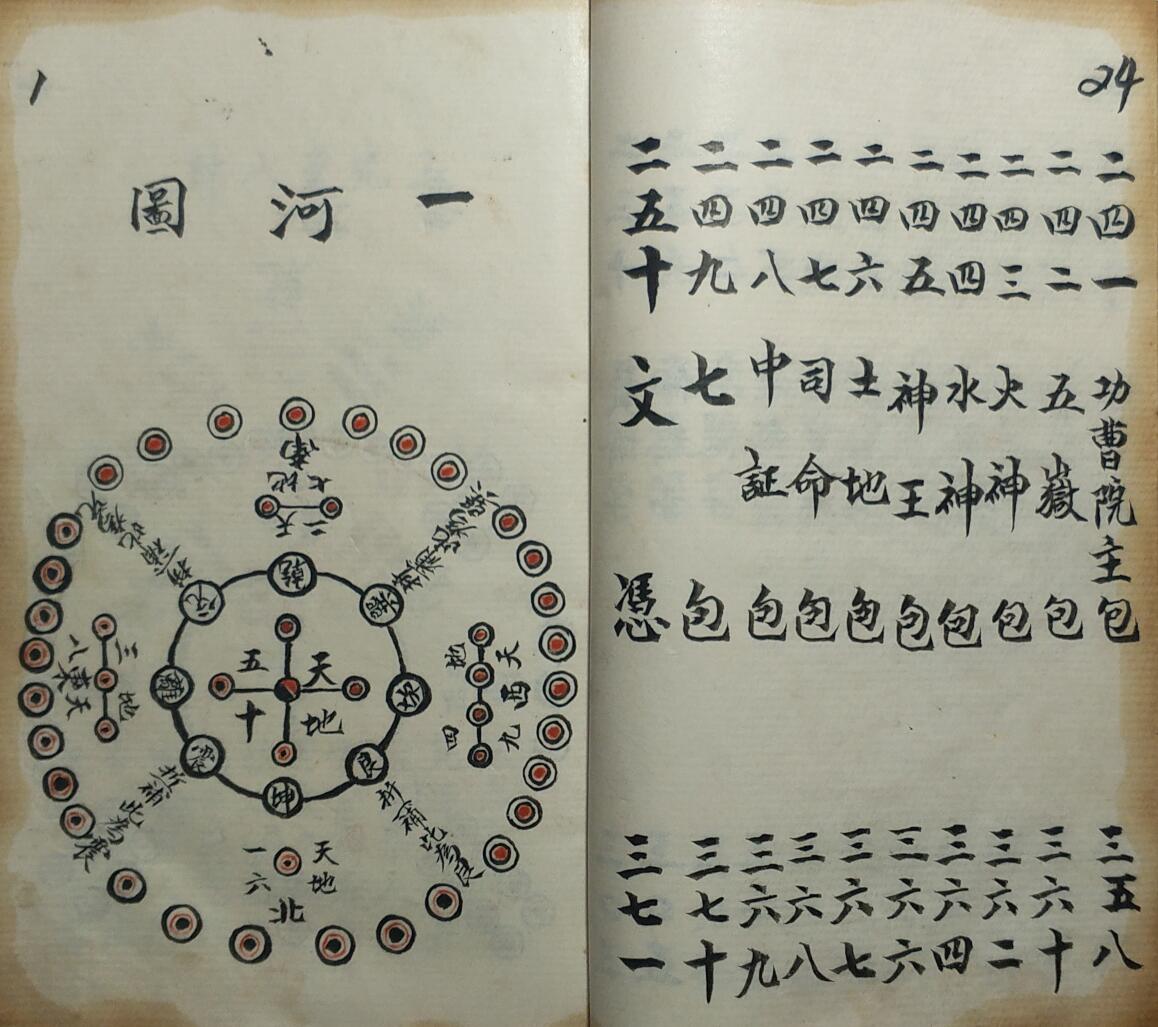 24
二四一 功曹院主包 三五八
二四二 五嶽包 三六十
二四三 火神包 三六二
二四四 水神包 三六四
二四五 神王包 三六六
二四六 土地包 三六七
二四七 司命包 三六八
二四八 中証包 三六九
二四九 七包 三七十
二五十 文憑 三七一
1
一河圖
南
地七
天二
乾
離
坎
艮
坤
震
天五
地十
天九
西
地四
天三
東
地八
折補此為震
折補此為艮
天一
地六
北